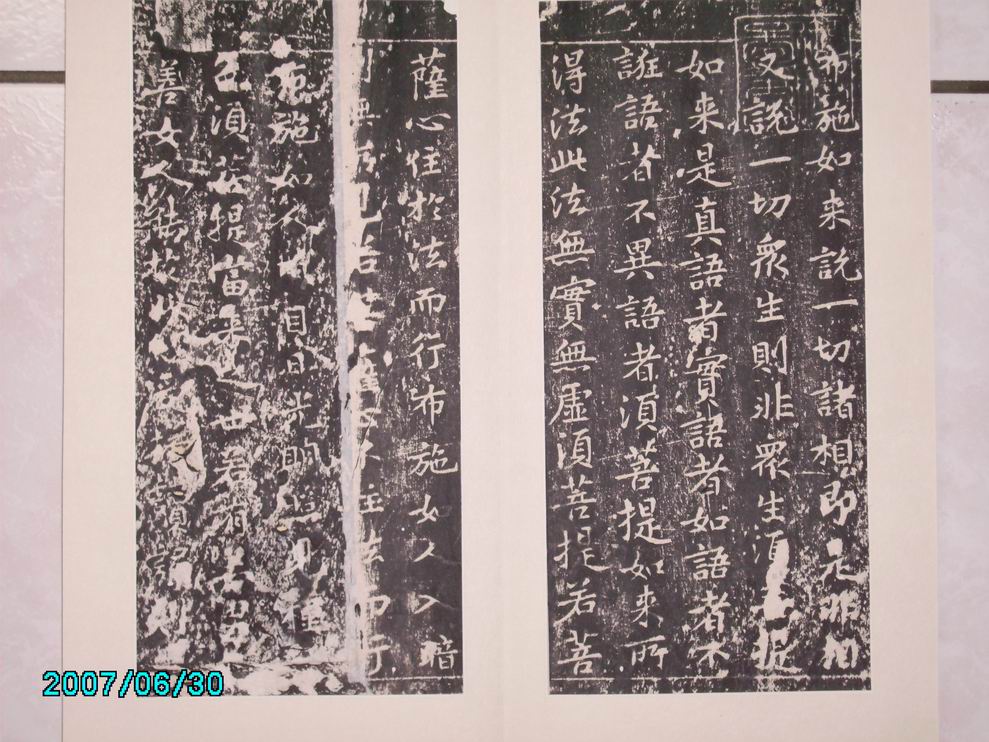 布施如来說一切諸相即是非相
又說一切衆生則非衆生須菩提
如来是真語者實語者如語者不
誑語者不異語者須菩提如来所
淂法此法無實無虛須菩提若菩
薩心住於法而行布施如人入暗
無所見若菩薩心不住法而行
布施如人有目日光明照見種
色須菩提當来之世若有善男
善女人能於此經持讀誦則
2007/06/30